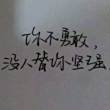 你不勇敢，
没人替你坚强